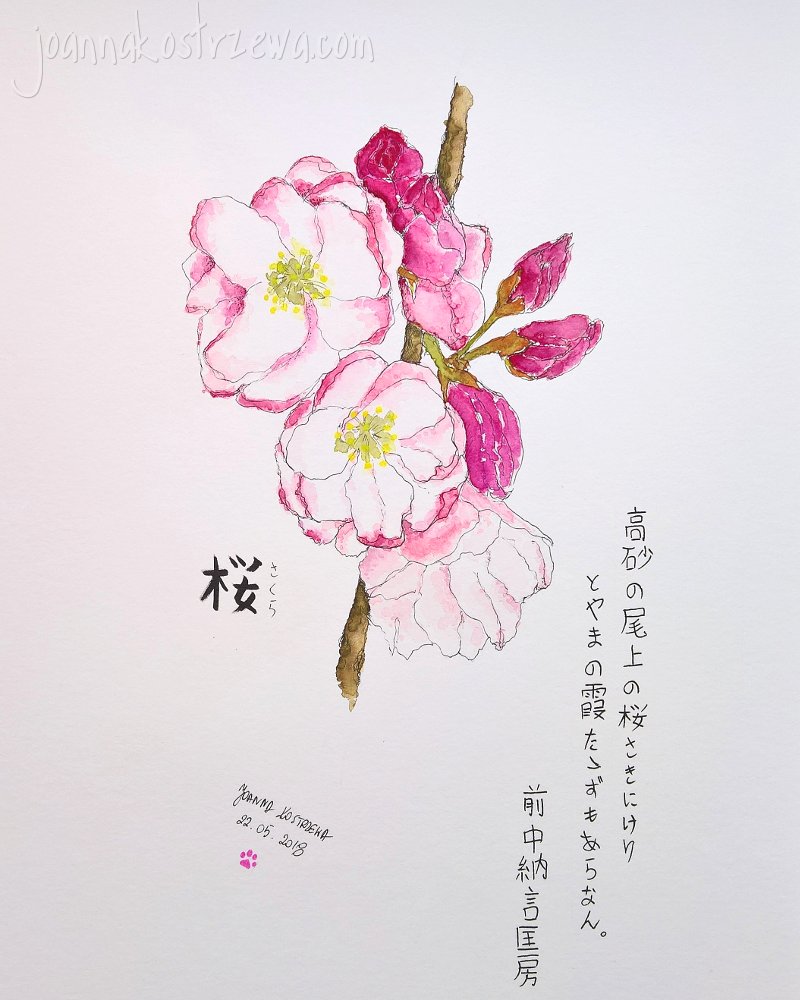 joannakostrzewa.com
高砂の尾上の桜さきにけり
とやまの霞たゝずもあらなん。
前中納言匡房
桜
さくら
JOANNA KOSTRZEWA
22.05.2018